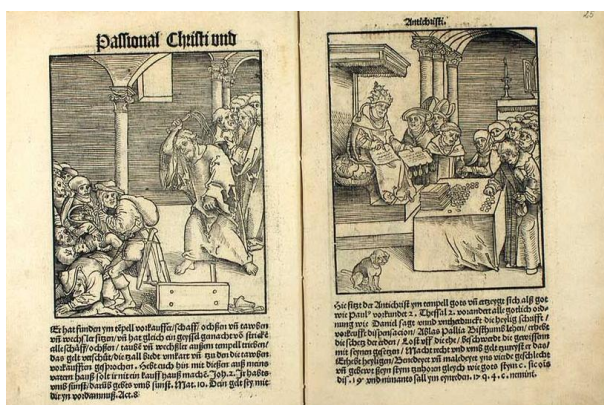 Passional Christi und
Er hat funden ym tēpell vorkauffer/ schaff/ ochßen vñ tawben
vñ wechsler sitzen/ vñ hat gleich ein geyssel gemacht vō stricke
alle schäff/ ochßen/ taubē vñ wechßler außem tempell trieben/
das gelt verschüt/ die zall bredt umkart vñ zu den die tawben
vorkaufften gesprochen. Hebt euch hin mit dießen auß meins
vatern hauß solt ir nit ein kauff hauß machē. Joh. 2. Ir habts
umb sunst/ darüb gebts umb sunst. Mat. 10. Dein gelt sey mit
dir yn vordamnuß. Act. 8
Antichristi.
25
Hie sitzt der Antichrist ym tempell gots vñ ertzeygt sich als got
wie Paulus vorkundet 2. Thessal 2. vorandert alle gotlich ord-
nung wie Daniel sagt unnd untherdruckt die heylig schrifft/
vorkeufft dispensacion/ Ablas Pallia Bisthumb lehen/ erhebt
die schetz der erden/ Lost uff die ehe/ Beschwerdt die gewissenn
mit seynen gesetzen/ Macht recht und umb gelt zureyst er das/
Erhebt heyligen/ Benedeyet vñ maledeyet yns vierde geschlecht
vñ gebewt seyn stym tzuhoren gleych wie gots stym c. sic ois
dis. 19 und nimants sall ym eynreden. 17 q. 4. c. nemini.